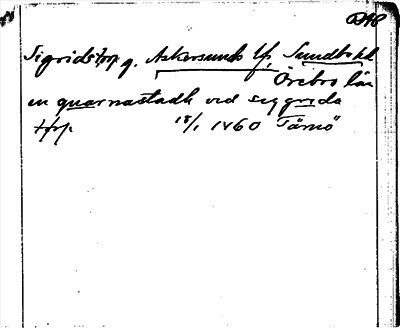 Sigridstorp g. Askersunds lfs, Sundbo hd
Örebro län
en quarnastadh ved siggrida
torp. 18/1 1460 Tärnö